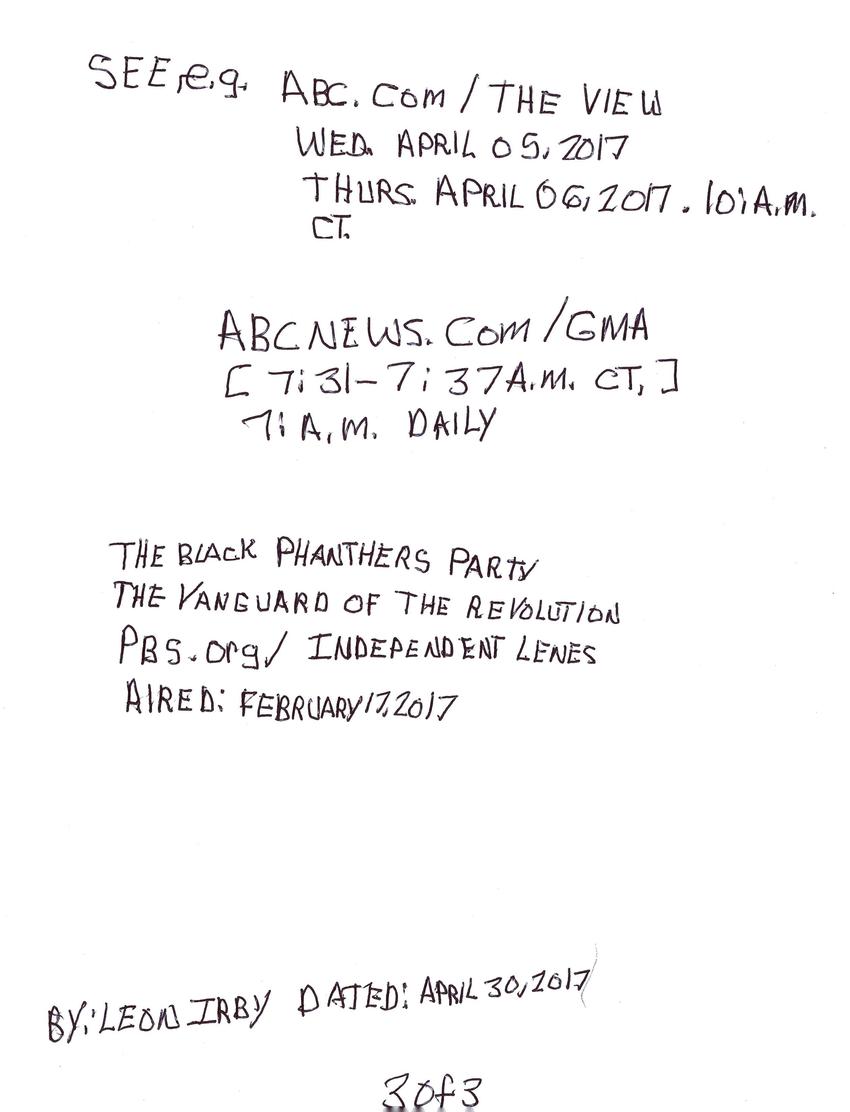 SEE, e.g. ABC.Com / THE VIEW
WED. APRIL 05, 2017
THURS. APRIL 06, 2017. 10: A.M.
CT.
ABCNEWS.Com/GMA
[ 7:31-7:37 A.M. CT, ]
7: A.M. DAILY
THE BLACK PHANTHERS PARTY
THE VANGUARD OF THE REVOLUTION
PBS.org/ INDEPENDENT LENES
AIRED: FEBRUARY 17, 2017
BY: LEON IRBY DATED: APRIL 30, 2017
3 of 3